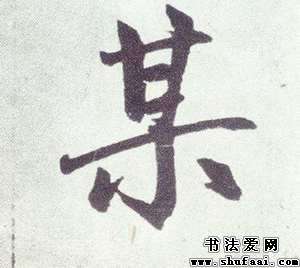 某
书法爱网
www.shufaai.com